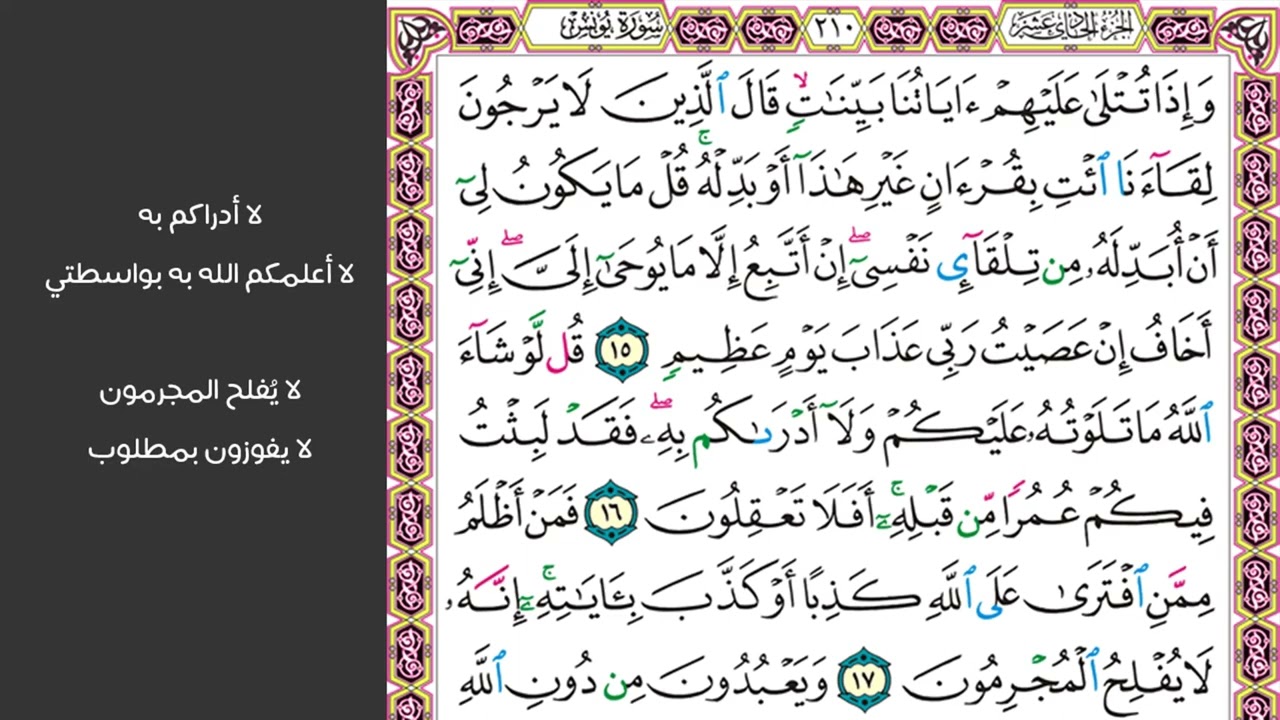 الجزء الحادي عشر
٢١٠
سورة يونس
وَإِذَا تُتْلَىٰ عَلَيْهِمْ ءَايَاتُنَا بَيِّنَٰتٍۙ قَالَ ٱلَّذِينَ لَا يَرْجُونَ
لِقَآءَنَا ٱئْتِ بِقُرْءَانٍ غَيْرِ هَٰذَآ أَوْ بَدِّلْهُۚ قُلْ مَا يَكُونُ لِىٓ
أَنْ أُبَدِّلَهُۥ مِن تِلْقَآئِ نَفْسِىٓۖ إِنْ أَتَّبِعُ إِلَّا مَا يُوحَىٰٓ إِلَىَّۖ إِنِّىٓ
أَخَافُ إِنْ عَصَيْتُ رَبِّى عَذَابَ يَوْمٍ عَظِيمٍ ١٥ قُل لَّوْ شَآءَ
ٱللَّهُ مَا تَلَوْتُهُۥ عَلَيْكُمْ وَلَآ أَدْرَىٰكُم بِهِۦۖ فَقَدْ لَبِثْتُ
فِيكُمْ عُمُرًا مِّن قَبْلِهِۦٓۚ أَفَلَا تَعْقِلُونَ ١٦ فَمَنْ أَظْلَمُ
مِمَّنِ ٱفْتَرَىٰ عَلَى ٱللَّهِ كَذِبًا أَوْ كَذَّبَ بِـَٔايَٰتِهِۦٓۚ إِنَّهُۥ
لَا يُفْلِحُ ٱلْمُجْرِمُونَ ١٧ وَيَعْبُدُونَ مِن دُونِ ٱللَّهِ
لا أدراكم به
لا أعلمكم الله به بواسطتي
لا يُفلح المجرمون
لا يفوزون بمطلوب